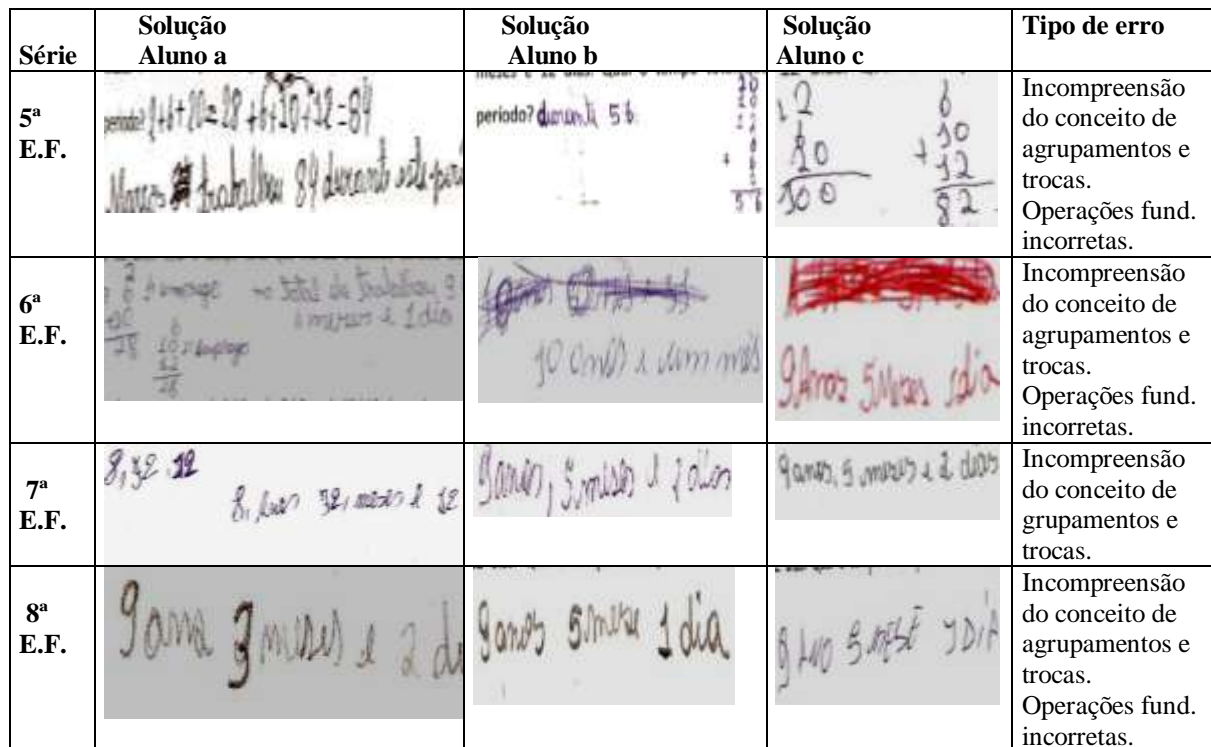 Série
Solução
Aluno a
Solução
Aluno b
Solução
Aluno c
Tipo de erro
5ª
E.F.
2+6+20=28+6+10+12=84
Marcos trabalhou 84 durante este
período?
56
+
56
2
100
6
10
+ 12
82
Incompreensão
do conceito de
agrupamentos e
trocas.
Operações fund.
incorretas.
6ª
E.F.
total de trabalhou 9
meses e 1 dia
10 anos e um mês
9 Anos 5 Meses 1 dia
Incompreensão
do conceito de
agrupamentos e
trocas.
Operações fund.
incorretas.
7ª
E.F.
8,32 12
8, 32, meses e 12
9 anos, 5 meses e 2 dias
9 anos, 5 meses e 2 dias
Incompreensão
do conceito de
grupamentos e
trocas.
8ª
E.F.
9 ano 9 meses e 2 di
9 anos 5 mese 1 dia
9 ANO 5 MESE 1 DIA
Incompreensão
do conceito de
agrupamentos e
trocas.
Operações fund.
incorretas.